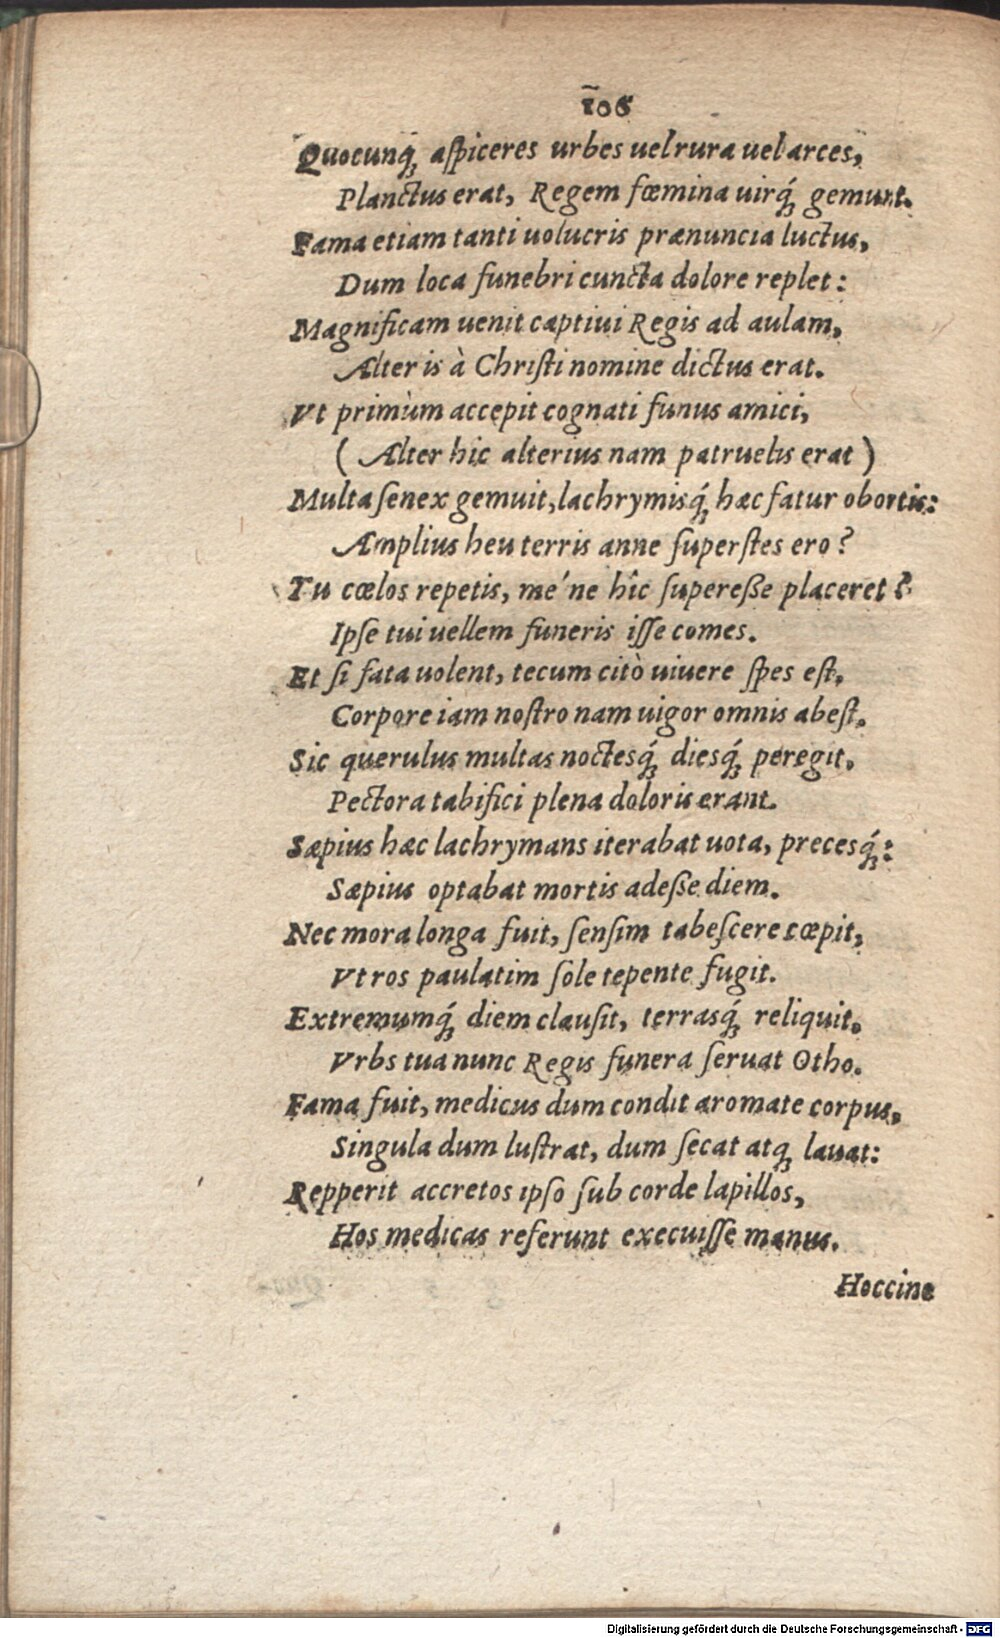 106
Quocunq́; aſpiceres urbes uel rura uel arces,
Planctus erat, Regem fœmina uirq́; gemunt.
Fama etiam tanti uolucris prænuncia luctus,
Dum loca funebri cuncta dolore replet:
Magnificam uenit captiui Regis ad aulam,
Alter is à Chriſti nomine dictus erat.
Vt primùm accepit cognati funus amici,
( Alter hic alterius nam patruelis erat )
Multa ſenex gemuit, lachrymisq́; hæc fatur obortis:
Amplius heu terris anne ſuperſtes ero?
Tu cœlos repetis, me´ne hîc ſupereſſe placeret?
Ipſe tui uellem funeris iſſe comes.
Et ſi fata uolent, tecum citò uiuere ſpes eſt,
Corpore iam noſtro nam uigor omnis abeſt.
Sic querulus multas noctesq́; diesq́; peregit,
Pectora tabifici plena doloris erant.
Sæpius hæc lachrymans iterabat uota, precesq́;:
Sæpius optabat mortis adeſſe diem.
Nec mora longa fuit, ſenſim tabeſcere cœpit,
Vt ros paulatim ſole tepente fugit.
Extremumq́; diem clauſit, terrasq́; reliquit,
Vrbs tua nunc Regis funera ſeruat Otho.
Fama fuit, medicus dum condit aromate corpus,
Singula dum luſtrat, dum ſecat atq; lauat:
Repperit accretos ipſo ſub corde lapillos,
Hos medicas referunt execuiſſe manus.
Hoccine
Digitalisierung gefördert durch die Deutsche Forschungsgemeinschaft - DFG